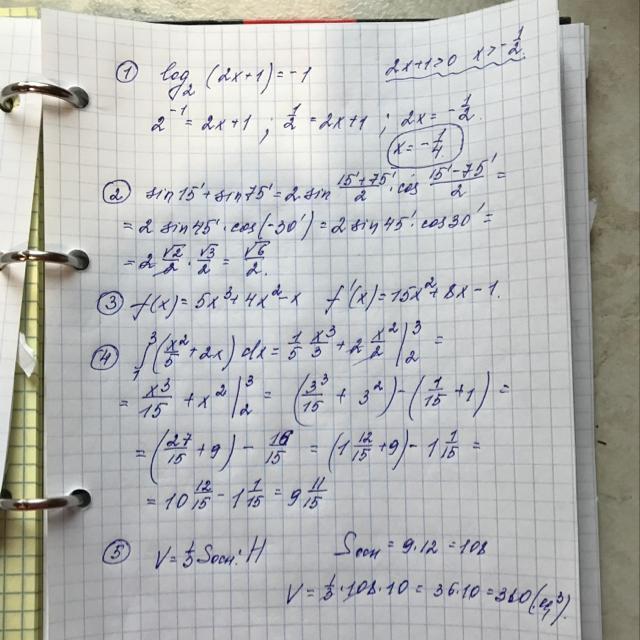 ① log₂ (2x+1) = -1   2x+1>0   x>-1/2
2⁻¹ = 2x+1 ; 1/2 = 2x+1 ; 2x = -1/2.
x = -1/4.
② sin15' + sin75' = 2 sin (15'+75')/2 · cos (15'-75')/2 =
= 2 sin45' · cos(-30') = 2 sin45' · cos30' =
= 2 √2/2 · √3/2 = √6/2.
③ f(x) = 5x³+4x²-x   f'(x) = 15x²+8x-1.
④ ∫₁³ (x²/5 + 2x) dx = 1/5 x³/3 + 2 x²/2 |₂³ =
= x³/15 + x² |₂³ = (3³/15 + 3²) - (1/15 + 1) =
= (27/15 + 9) - 16/15 = (1 12/15 + 9) - 1 1/15 =
= 10 12/15 - 1 1/15 = 9 11/15
⑤ V = 1/3 Sосн · H   Sосн = 9·12 = 108
V = 1/3 · 108 · 10 = 36·10 = 360 (ед³).